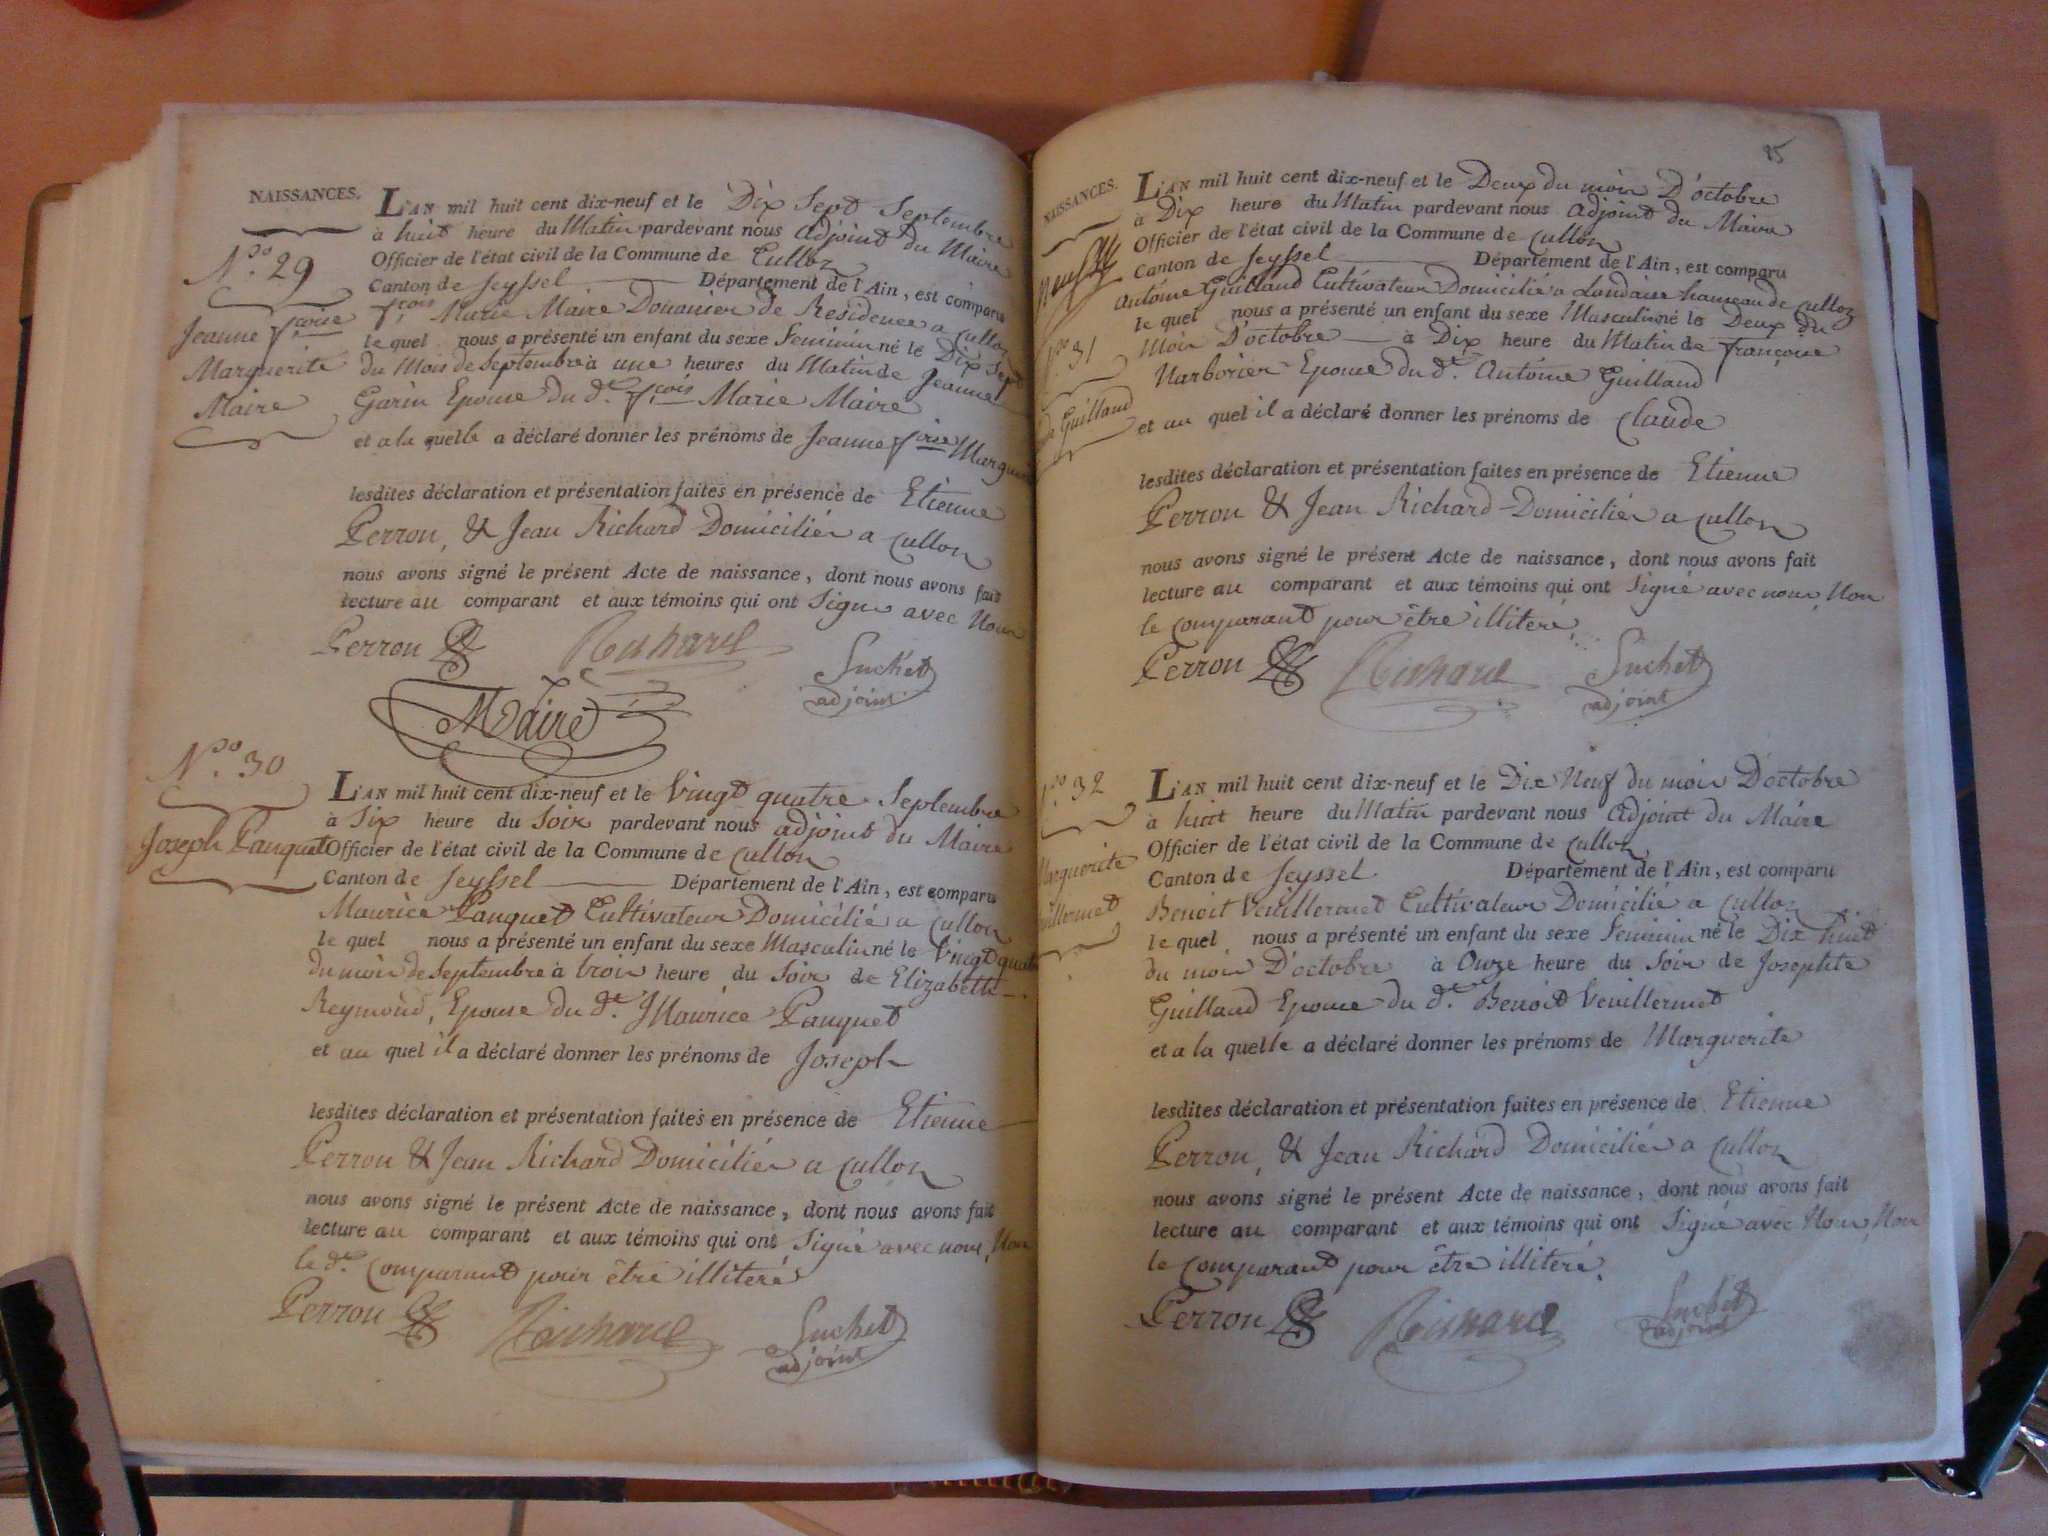 NAISSANCES.
N.º 29
Jeanne f.coise
Marguerite
Maire
L'AN mil huit cent dix-neuf et le Dix Sept Septembre
à huit heure du Matin pardevant nous adjoint du Maire
Officier de l'état civil de la Commune de Culloz
Canton de Seyssel Département de l'Ain, est comparu
f.çois Marie Maire Douanier de Residence a Culloz
le quel nous a présenté un enfant du sexe Feminin né le Dix Sept
du Mois de Septembre à une heures du Matin de Jeanne
Garin Epouse du d.t f.çois Marie Maire
et a la quelle a déclaré donner les prénoms de Jeanne f.coise
lesdites déclaration et présentation faites en présence de Etienne
Perron, & Jean Richard Domiciliés a Culloz
nous avons signé le présent Acte de naissance, dont nous avons fait
lecture au comparant et aux témoins qui ont Signe avec Nous
Perron Richard Suchet
adjoint
Maire
N.º 30
Joseph Pauquet
L'AN mil huit cent dix-neuf et le Vingt quatre Septembre
à Six heure du Soir pardevant nous adjoint du Maire
Officier de l'état civil de la Commune de Culloz
Canton de Seyssel Département de l'Ain, est comparu
Maurice Pauquet Cultivateur Domicilié a Culloz
le quel nous a présenté un enfant du sexe Masculin né le Vingt quatre
du mois de Septembre à trois heure du Soir de Elizabeth
Reymond, Epouse du d.t Maurice Pauquet
et au quel il a déclaré donner les prénoms de Joseph
lesdites déclaration et présentation faites en présence de Etienne
Perron & Jean Richard Domiciliés a Culloz
nous avons signé le présent Acte de naissance, dont nous avons fait
lecture au comparant et aux témoins qui ont Signé avec nous, Non
le d.t Comparant pour être illiteré
Perron Richard Suchet
adjoint
85
NAISSANCES.
N.º 31
Guilland
L'AN mil huit cent dix-neuf et le Deux du mois D'octobre
à Dix heure du Matin pardevant nous adjoint du Maire
Officier de l'état civil de la Commune de Culloz
Canton de Seyssel Département de l'Ain, est comparu
Antoine Guilland Cultivateur Domicilié a Landaise hameau de Culloz
le quel nous a présenté un enfant du sexe Masculin né le Deux du
mois D'octobre à Dix heure du Matin de françoise
Marborier Epouse du d.t Antoine Guilland
et au quel il a déclaré donner les prénoms de Claude
lesdites déclaration et présentation faites en présence de Etienne
Perron & Jean Richard Domiciliés a Culloz
nous avons signé le présent Acte de naissance, dont nous avons fait
lecture au comparant et aux témoins qui ont Signé avec nous, Non
le Comparant pour être illiteré
Perron Richard Suchet
adjoint
N.º 32
Marguerite
Vuillermet
L'AN mil huit cent dix-neuf et le Dix Neuf du mois D'octobre
à huit heure du Matin pardevant nous Adjoint du Maire
Officier de l'état civil de la Commune de Culloz
Canton de Seyssel. Département de l'Ain, est comparu
Benoit Vuillermet Cultivateur Domicilié a Culloz
le quel nous a présenté un enfant du sexe Feminin né le Dix huit
du mois D'octobre à Onze heure du Soir de Josephte
Guilland Epouse du d.t Benoit Vuillermet
et a la quelle a déclaré donner les prénoms de Marguerite
lesdites déclaration et présentation faites en présence de Etienne
Perron, & Jean Richard Domiciliés a Culloz
nous avons signé le présent Acte de naissance, dont nous avons fait
lecture au comparant et aux témoins qui ont Signé avec Nous, Non
le Comparant pour être illiteré.
Perron Richard Suchet
adjoint